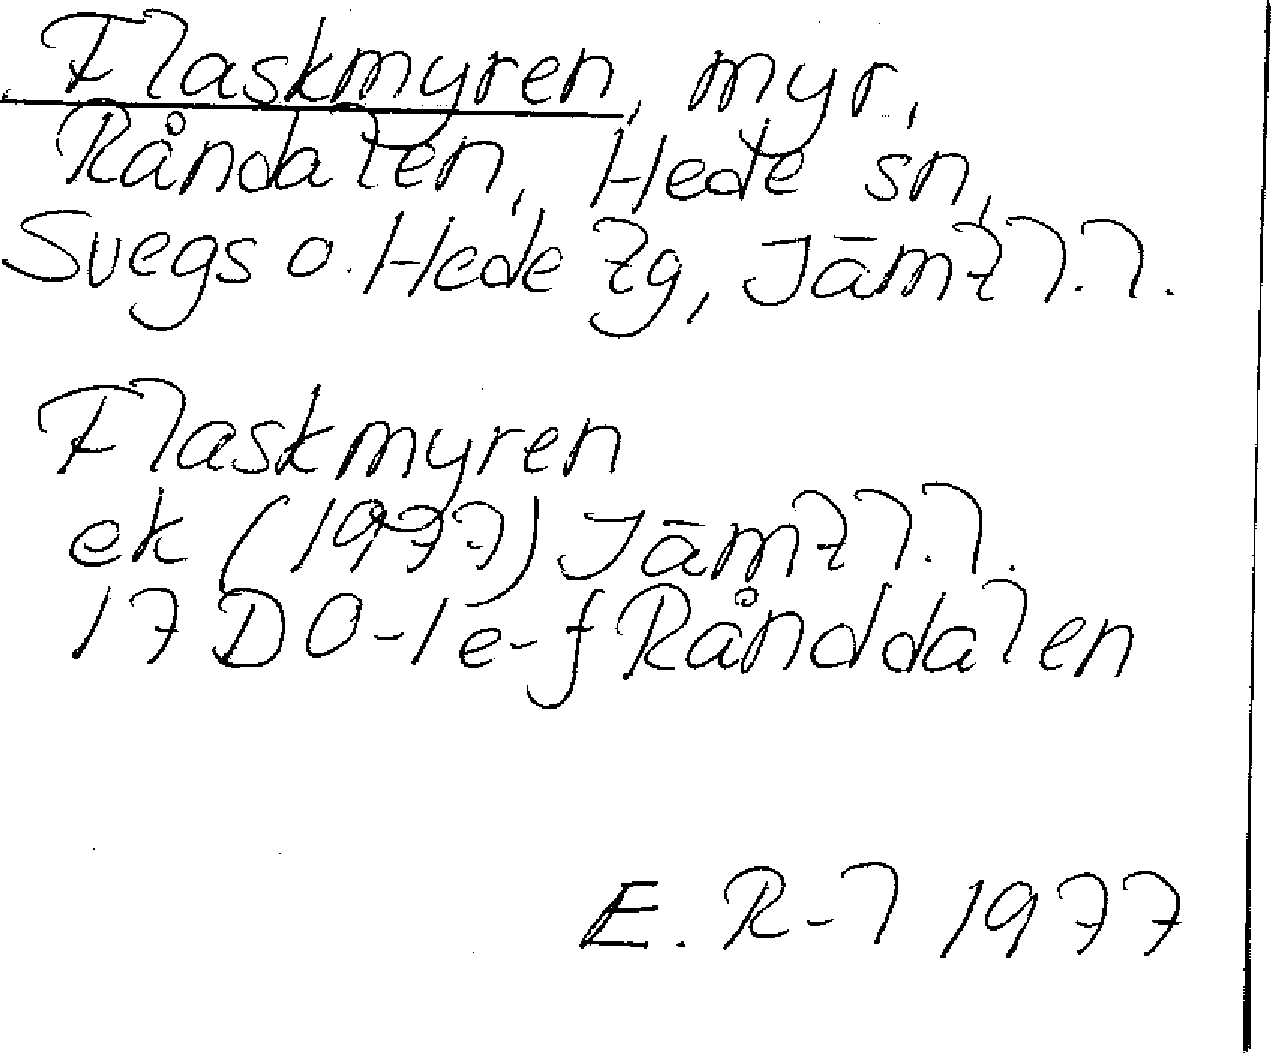 Flaskmyren, myr,
Råndalen, Hede sn,
Svegs o. Hede tg, Jämtl.l.
Flaskmyren
ek (1977) Jämtl.l.
17 D 0-1 e-f Rånddalen
E. R-l 1977